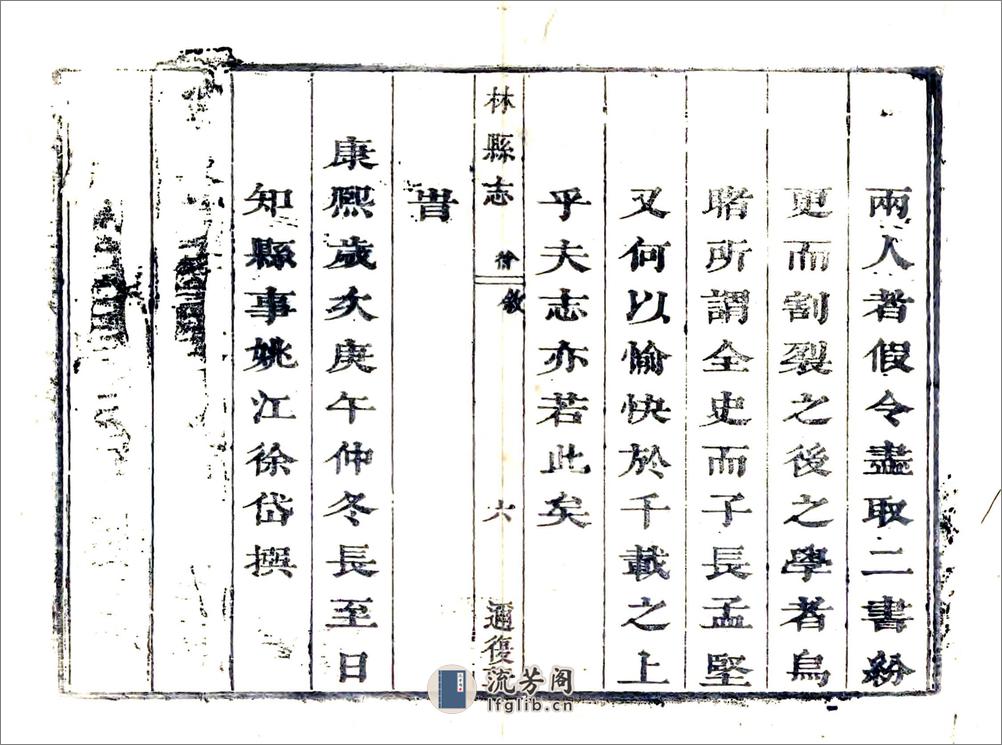 兩人者假令盡取二書紛
更而割裂之後之學者烏
睹所謂全史而子長孟堅
又何以愉快於千載之上
乎夫志亦若此矣
林縣志 徐敘 六 邇復
旹
康熙歲次庚午仲冬長至日
知縣事姚江徐岱撰
流芳阁
lfglib.cn